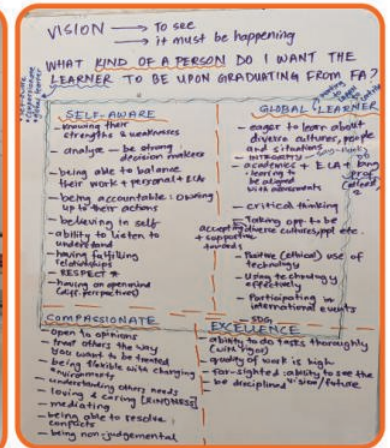 VISION → To see
→ it must be happening
WHAT KIND OF A PERSON DO I WANT THE
LEARNER TO BE UPON GRADUATING FROM FA?
SELF-AWARE
- knowing their
strengths & weaknesses
- analyse - be strong
decision makers
- being able to balance
their work + personal + ECA
- being accountable : owning
up to their actions
- believing in self
- ability to listen to
understand
- having fulfilling
relationships
- RESPECT *
- having an open mind
(diff. perspectives)
GLOBAL LEARNER
- eager to learn about
diverse cultures, people
and situations
- INTEGRITY - say - think - do
academics + ECA +
- learning to
be aligned
with
- critical thinking
- Taking opp to be
accepting diverse cultures, ppl etc.
+ supportive
towards
- Positive (ethical) use of
technology
- Using technology
effectively
- Participating in
international events
- SDG
COMPASSIONATE
- open to opinions
- treat others the way
you want to be treated
- being flexible with changing
environments
- understanding others needs
- loving & caring [KINDNESS]
- mediating
- being able to resolve
conflicts
- being non-judgemental
EXCELLENCE
- ability to do tasks thoroughly
(with rigor)
- quality of work is high
- far-sighted : ability to see the
vision/future
- be disciplined